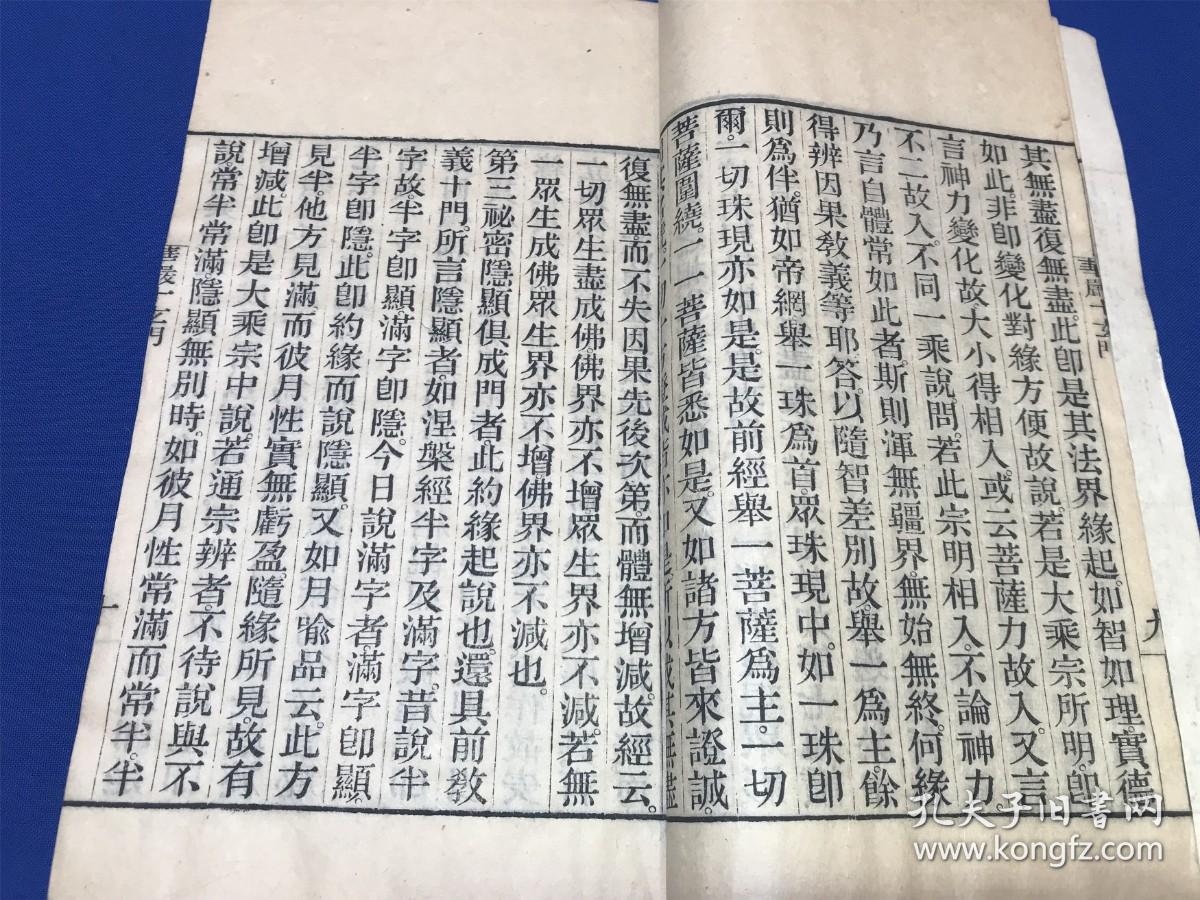 華嚴十玄門
九
其無盡復無盡此卽是其法界緣起。如智如理。實德
如此非卽變化對緣方便故說。若是大乘宗所明。卽
言神力變化故大小得相入。或云菩薩力故入。又言
不二故入。不同一乘說。問。若此宗明相入。不論神力。
乃言自體常如此者斯則渾無疆界。無始無終。何緣
得辨因果敎義等耶。答。以隨智差別故。舉一爲主。餘
則爲伴。猶如帝網舉一珠爲首。眾珠現中。如一珠卽
爾。一切珠現亦如是。是故前經舉一菩薩爲主。一切
菩薩圍繞。一一菩薩皆悉如是。又如諸方皆來證誠。
復無盡而不失因果先後次第。而體無增減。故經云。
一切眾生盡成佛佛界亦不增眾生界亦不減。若無
一眾生成佛眾生界亦不增佛界亦不減也。
第三祕密隱顯俱成門者。此約緣起說也。還具前敎
義十門。所言隱顯者。如涅槃經半字及滿字。昔說半
字故。半字卽顯滿字卽隱。今日說滿字者。滿字卽顯。
半字卽隱。此卽約緣而說隱顯。又如月喩品云。此方
見半。他方見滿而彼月性實無虧盈。隨緣所見。故有
增減。此卽是大乘宗中說。若通宗辨者。不待說與不
說。常半常滿。隱顯無別時。如彼月性常滿而常半。半
華嚴十玄門
十
孔夫子旧书网
www.kongfz.com